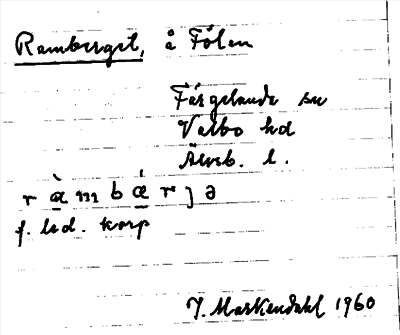 Ramberget, å Fölen
Färgelanda sn
Valbo hd
Älvsb. l.
r à̱ m b á̱ r ȷ ə
f. led. korp
J. Markendahl 1960